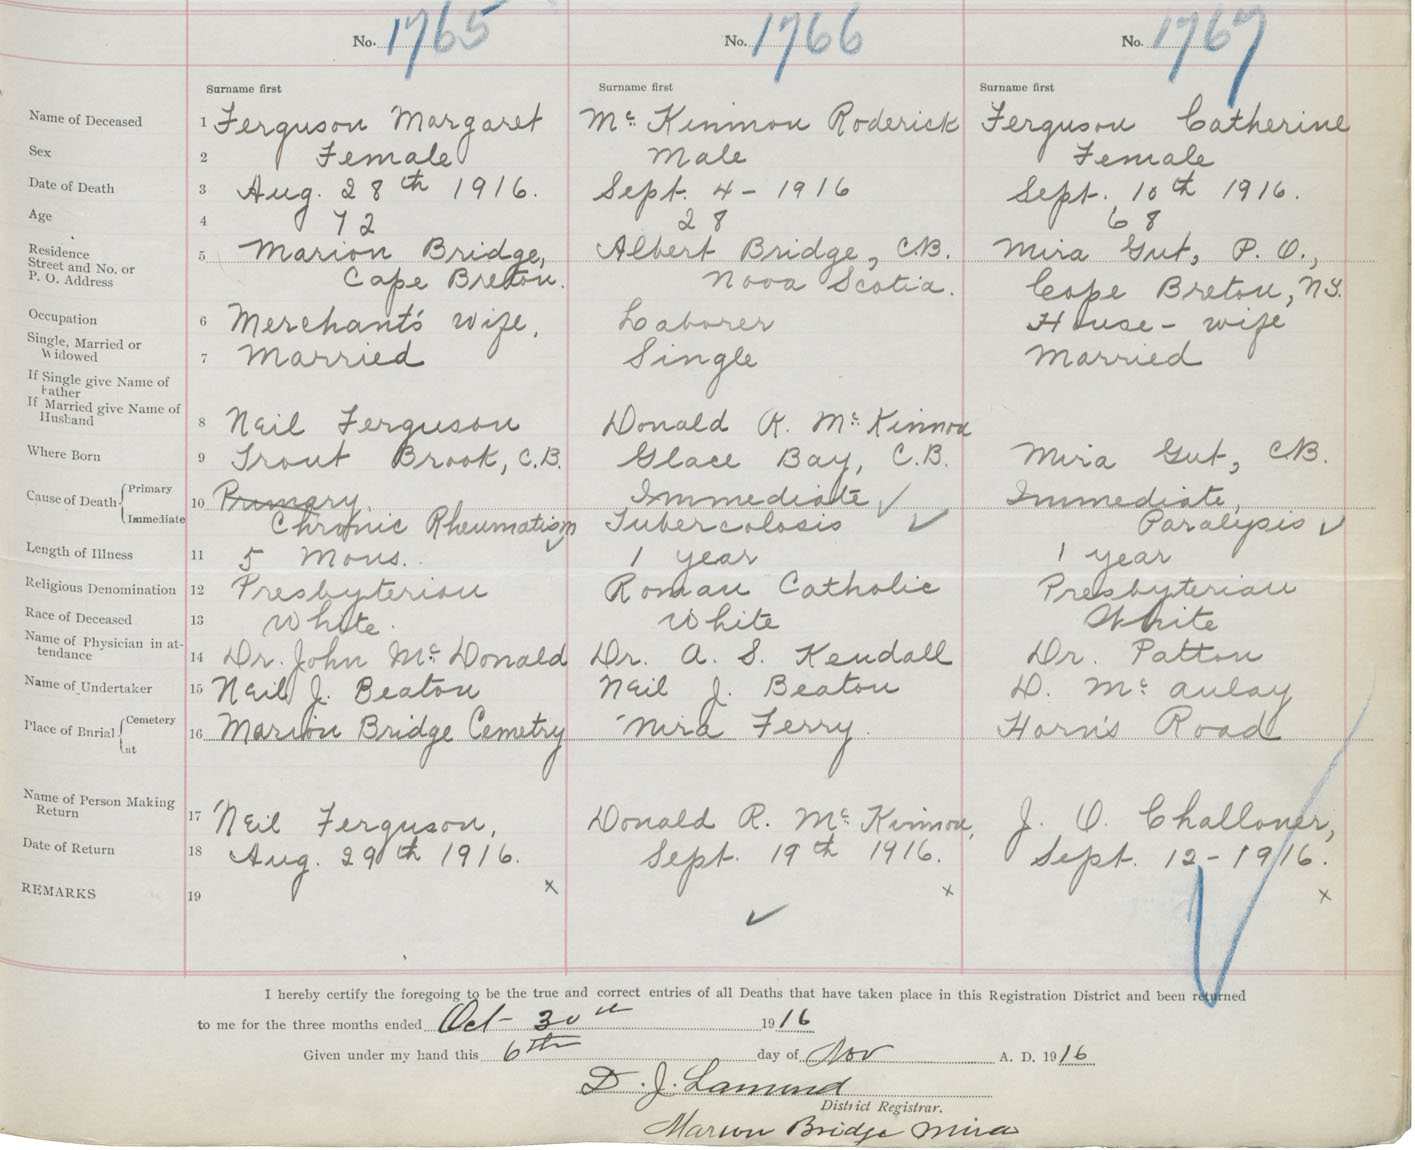 No. 1765 No. 1766 No. 1767
Surname first Surname first Surname first
Name of Deceased 1 Ferguson Margaret McKinnon Roderick Ferguson Catherine
Sex 2 Female Male Female
Date of Death 3 Aug. 28th 1916. Sept. 4 - 1916 Sept. 10th 1916.
Age 4 72 28 68
Residence
Street and No. or
P. O. Address
5 Marion Bridge, Albert Bridge, C.B. Mira Gut, P. O.,
Cape Breton. Nova Scotia. Cape Breton, N.S.
Occupation 6 Merchant's wife, Laborer House-wife
Single, Married or
Widowed
7 Married Single Married
If Single give Name of
Father
If Married give Name of
Husband
8 Neil Ferguson Donald R. McKinnon
Where Born 9 Trout Brook, C.B. Glace Bay, C.B. Mira Gut, C.B.
Cause of Death Primary
Immediate
10 Primary. Immediate ✓ Immediate,
Chronic Rheumatism ✓ Tubercolosis ✓ Paralysis ✓
Length of Illness 11 5 Mons. 1 year 1 year
Religious Denomination 12 Presbyterian Roman Catholic Presbyterian
Race of Deceased 13 White. White White
Name of Physician in at-
tendance
14 Dr. John McDonald Dr. A. S. Kendall Dr. Patton
Name of Undertaker 15 Neil J. Beaton Neil J. Beaton D. McAulay
Place of Burial Cemetery
at
16 Marion Bridge Cemetry Mira Ferry. Horn's Road
Name of Person Making
Return
17 Neil Ferguson, Donald R. McKinnon, J. O. Challoner,
Date of Return 18 Aug. 29th 1916. Sept. 19th 1916. Sept. 12 - 1916.
REMARKS 19 x x x
✓
I hereby certify the foregoing to be the true and correct entries of all Deaths that have taken place in this Registration District and been returned
to me for the three months ended Oct- 30th 1916
Given under my hand this 6th day of Nov A. D. 1916
D. J. Lamond
District Registrar.
Marion Bridge Mira